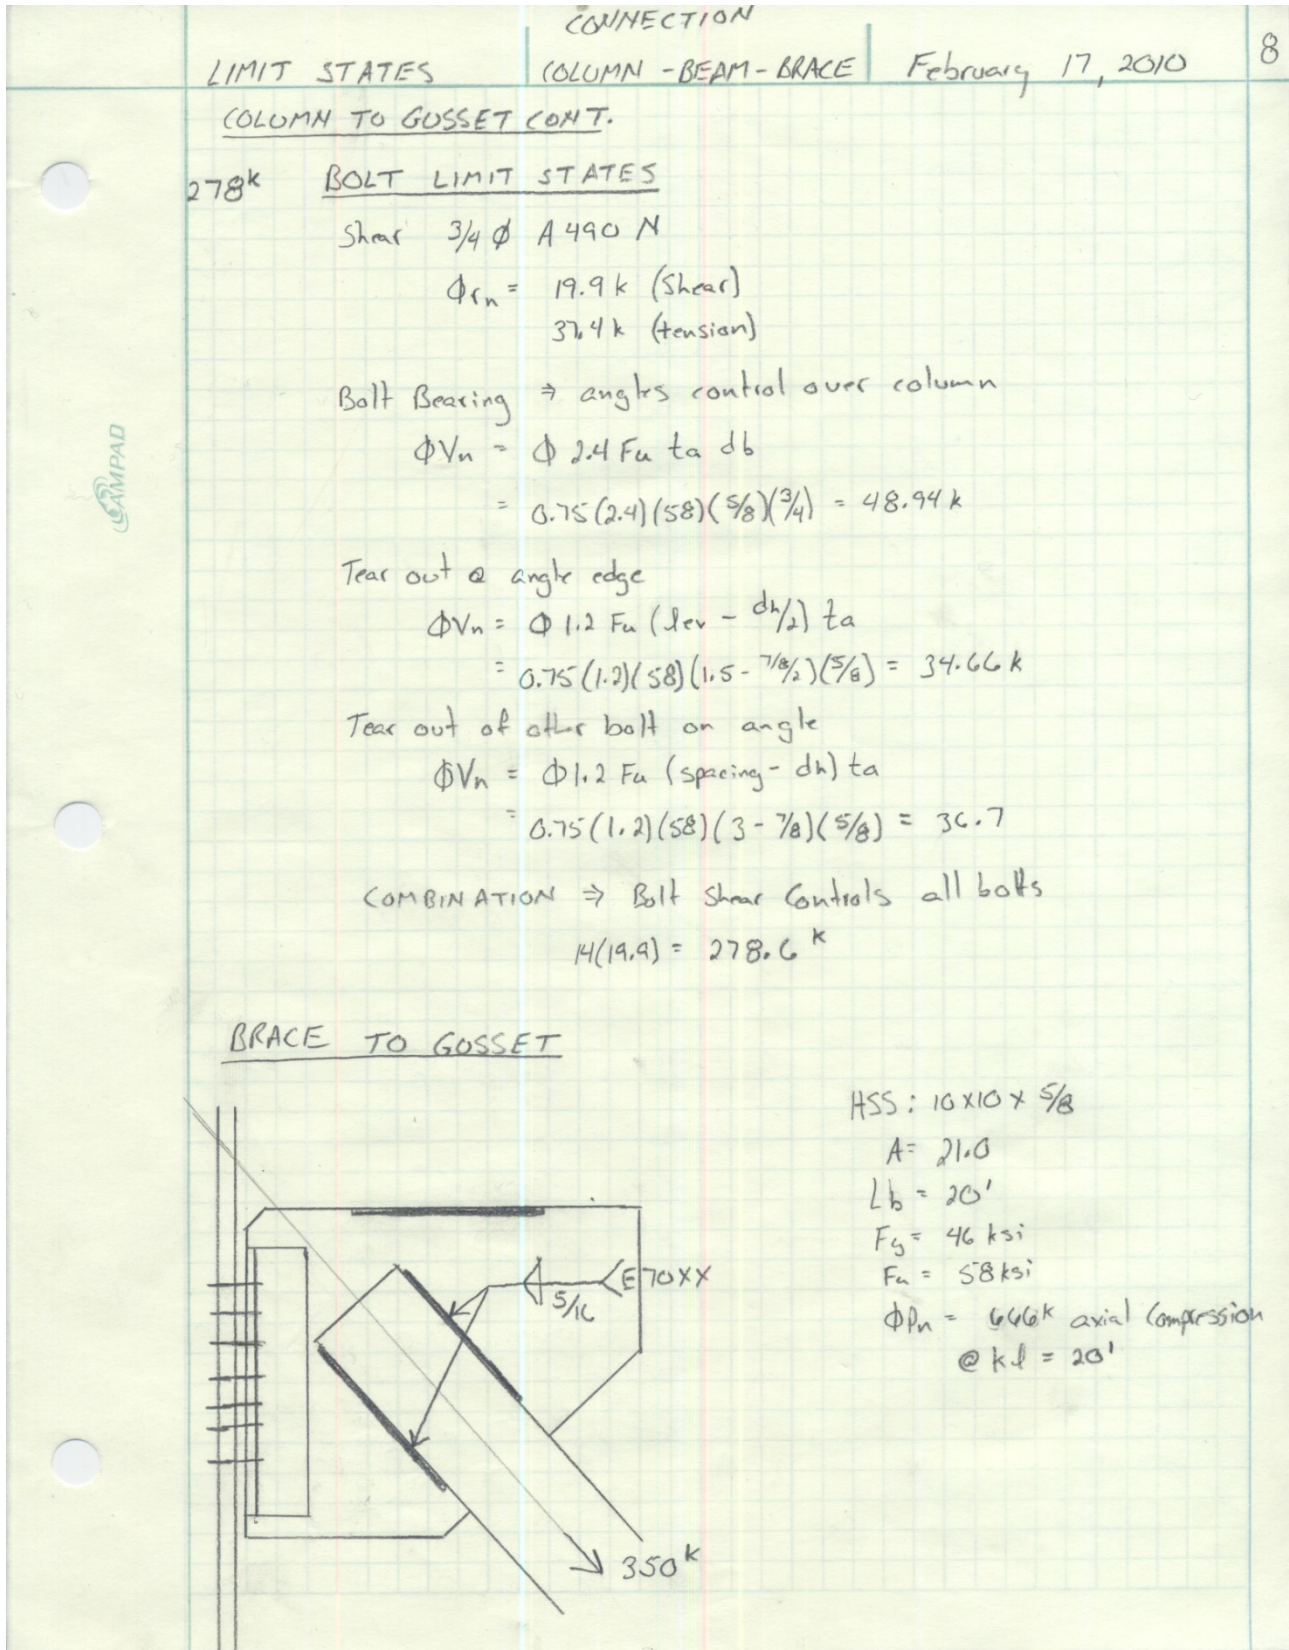 CONNECTION
LIMIT STATES COLUMN-BEAM-BRACE February 17, 2010 8
COLUMN TO GUSSET CONT.
278k BOLT LIMIT STATES
Shear 3/4 Φ A490 N
Φrn = 19.9k (Shear)
37.4k (tension)
Bolt Bearing ⇒ angles control over column
ΦVn = Φ 2.4 Fu ta db
= 0.75(2.4)(58)(5/8)(3/4) = 48.94k
AMPAD
Tear out @ angle edge
ΦVn = Φ 1.2 Fu (lev - dh/2) ta
= 0.75(1.2)(58)(1.5 - 7/8/2)(5/8) = 34.66k
Tear out of other bolt on angle
ΦVn = Φ1.2 Fu (spacing - dh) ta
= 0.75(1.2)(58)(3 - 7/8)(5/8) = 36.7
COMBINATION ⇒ Bolt Shear Controls all bolts
14(19.9) = 278.6 k
BRACE TO GUSSET
HSS: 10x10 x 5/8
A = 21.0
Lb = 20'
Fy = 46 ksi
Fu = 58 ksi
ΦPn = 646k axial Compression
@ kl = 20'
5/16 E70XX
350k